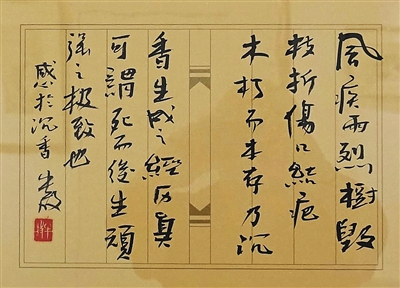 風疾雨烈樹毀
枝折傷口結疤
木朽而未存乃沉
香生成之經歷真
可謂死而後生頑
強之極致也
感於沉香